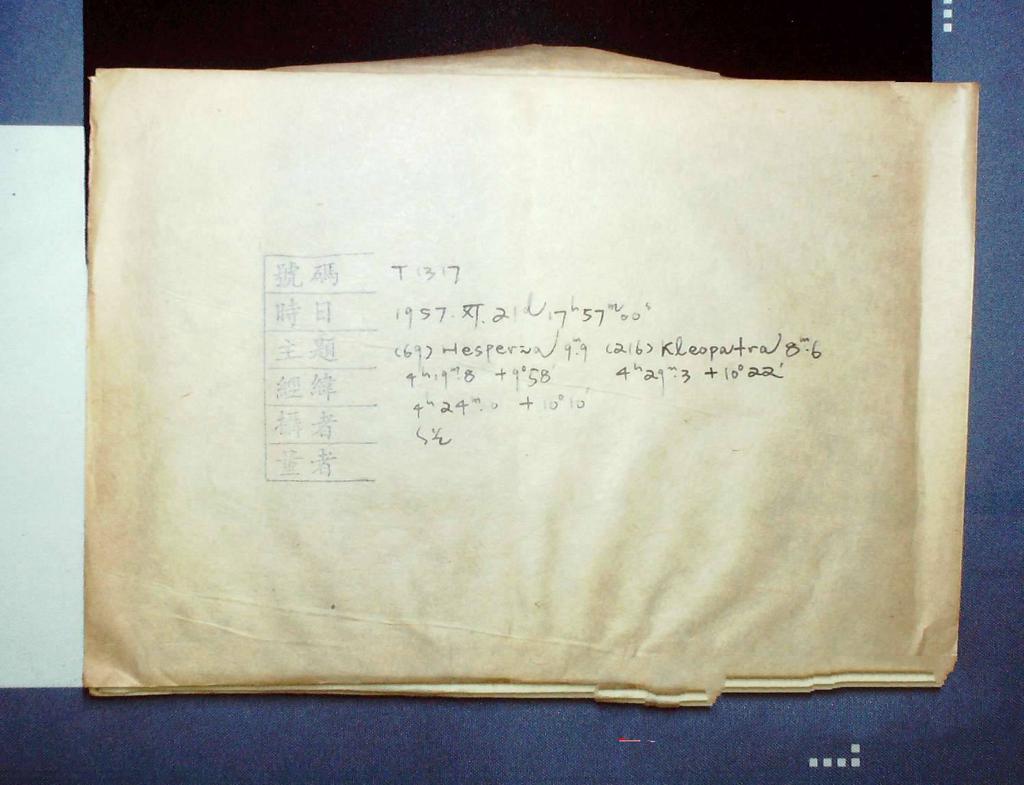 號碼 T 1317
時日 1957. XI. 21d 17h57m00s
主題 (69) Hesperia 9m.9 (216) Kleopatra 8m.6
經緯 4h19m.8 +9°58' 4h29m.3 +10°22'
攝者 4h24m.0 +10°10'
量者